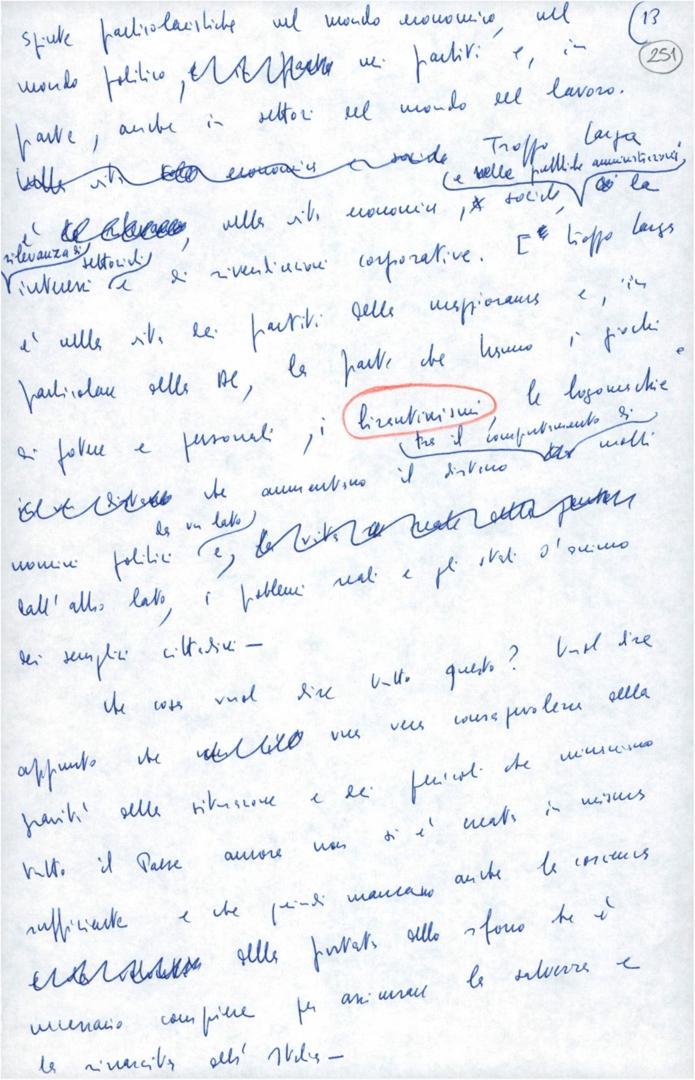 spinte particolaristiche nel mondo economico, nel
13
251
mondo politico, nei partiti e, in
parte, anche in settori del mondo del lavoro.
Troppo larga
e nelle pubbliche amministrazioni
è, nella vita economica, sociale, la
rilevanza di settoriali
interessi e di rivendicazioni corporative. E troppo larga
è nella vita dei partiti della maggioranza e, in
particolare della DC, la parte che hanno i giochi
di potere e personali, i bizantinismi, le logomachie
tra il comportamento di
che aumentano il distacco molti
da un lato
uomini politici e,
dall'altro lato, i problemi reali e gli stati d'animo
dei semplici cittadini —
Che cosa vuol dire tutto questo? Vuol dire
appunto che una vera consapevolezza della
gravità della situazione e dei pericoli che minacciano
tutto il Paese ancora non si è creata in misura
sufficiente e che quindi mancano anche la coscienza
della portata dello sforzo che è
necessario compiere per assicurare la salvezza e
la rinascita dell'Italia —